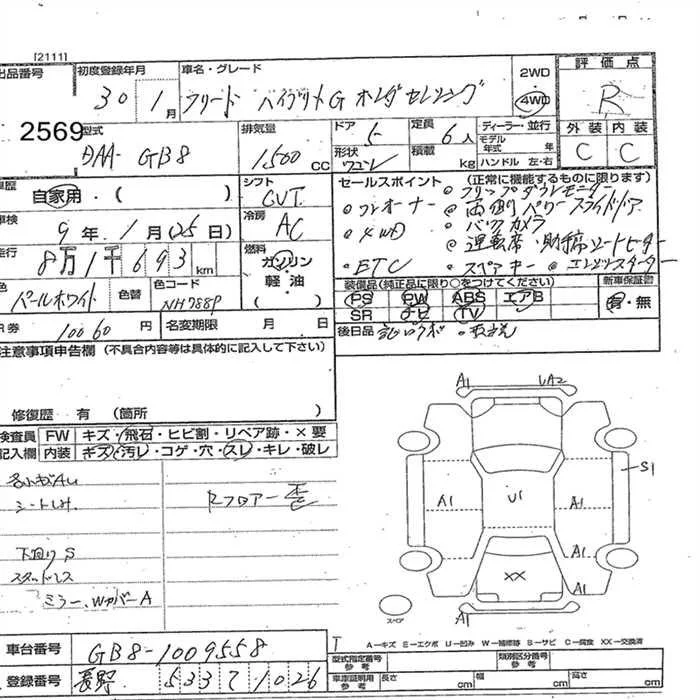 [2111]
出品番号
初度登録年月
車名・グレード
2WD
4WD
評価点
30 1月
フリード ハイブリッドG ホンダセンシング
R
2569
型式
排気量
ドア
定員
ディーラー・並行
外装 内装
DAA-GB8
1,500 CC
5
6人
モデル年式 年
C C
形状
ワゴン
積載 kg
ハンドル 左・右
車歴
自家用・( )
シフト
CVT
セールスポイント (正常に機能するものに限ります)
フリップダウンモニター
ワンオーナー
両側パワースライドドア
車検
9年 1月(25日)
冷房
AC
4WD
バックカメラ
運転席・助手席シートヒーター
走行
8万1千693km
燃料
ガソリン・軽油・( )
ETC
スペアキー
エンジンスターター
色
パールホワイト
色替
色コード
NH788P
装備品(純正品に限り○をつけてください)
新車保証書
PS PW ABS エアB
有・無
SR ナビ TV
R券
10060円
名変期限 月 日
後日品
注意事項申告欄 (不具合内容等は具体的に記入して下さい)
修復歴 有 (箇所 )
検査員記入欄
FW キズ・飛石・ヒビ割・リペア跡・×要
内装 キズ・汚レ・コゲ・穴・スレ・キレ・破レ
シートしみ
Rフロアー 歪
下回りS
スタッドレス
ミラー、WカバーA
A1 UA2
S1
A1 U1 A1
A1
XX A1
A1
スペア
A-キズ E-エクボ U-凹み W-補修跡 S-サビ C-腐食 XX-交換済
車台番号
GB8-1009558
型式指定番号 参考
類別区分番号 参考
登録番号
長野 533 て 1026
車庫証明用 参考
長さ cm
幅 cm
高さ cm